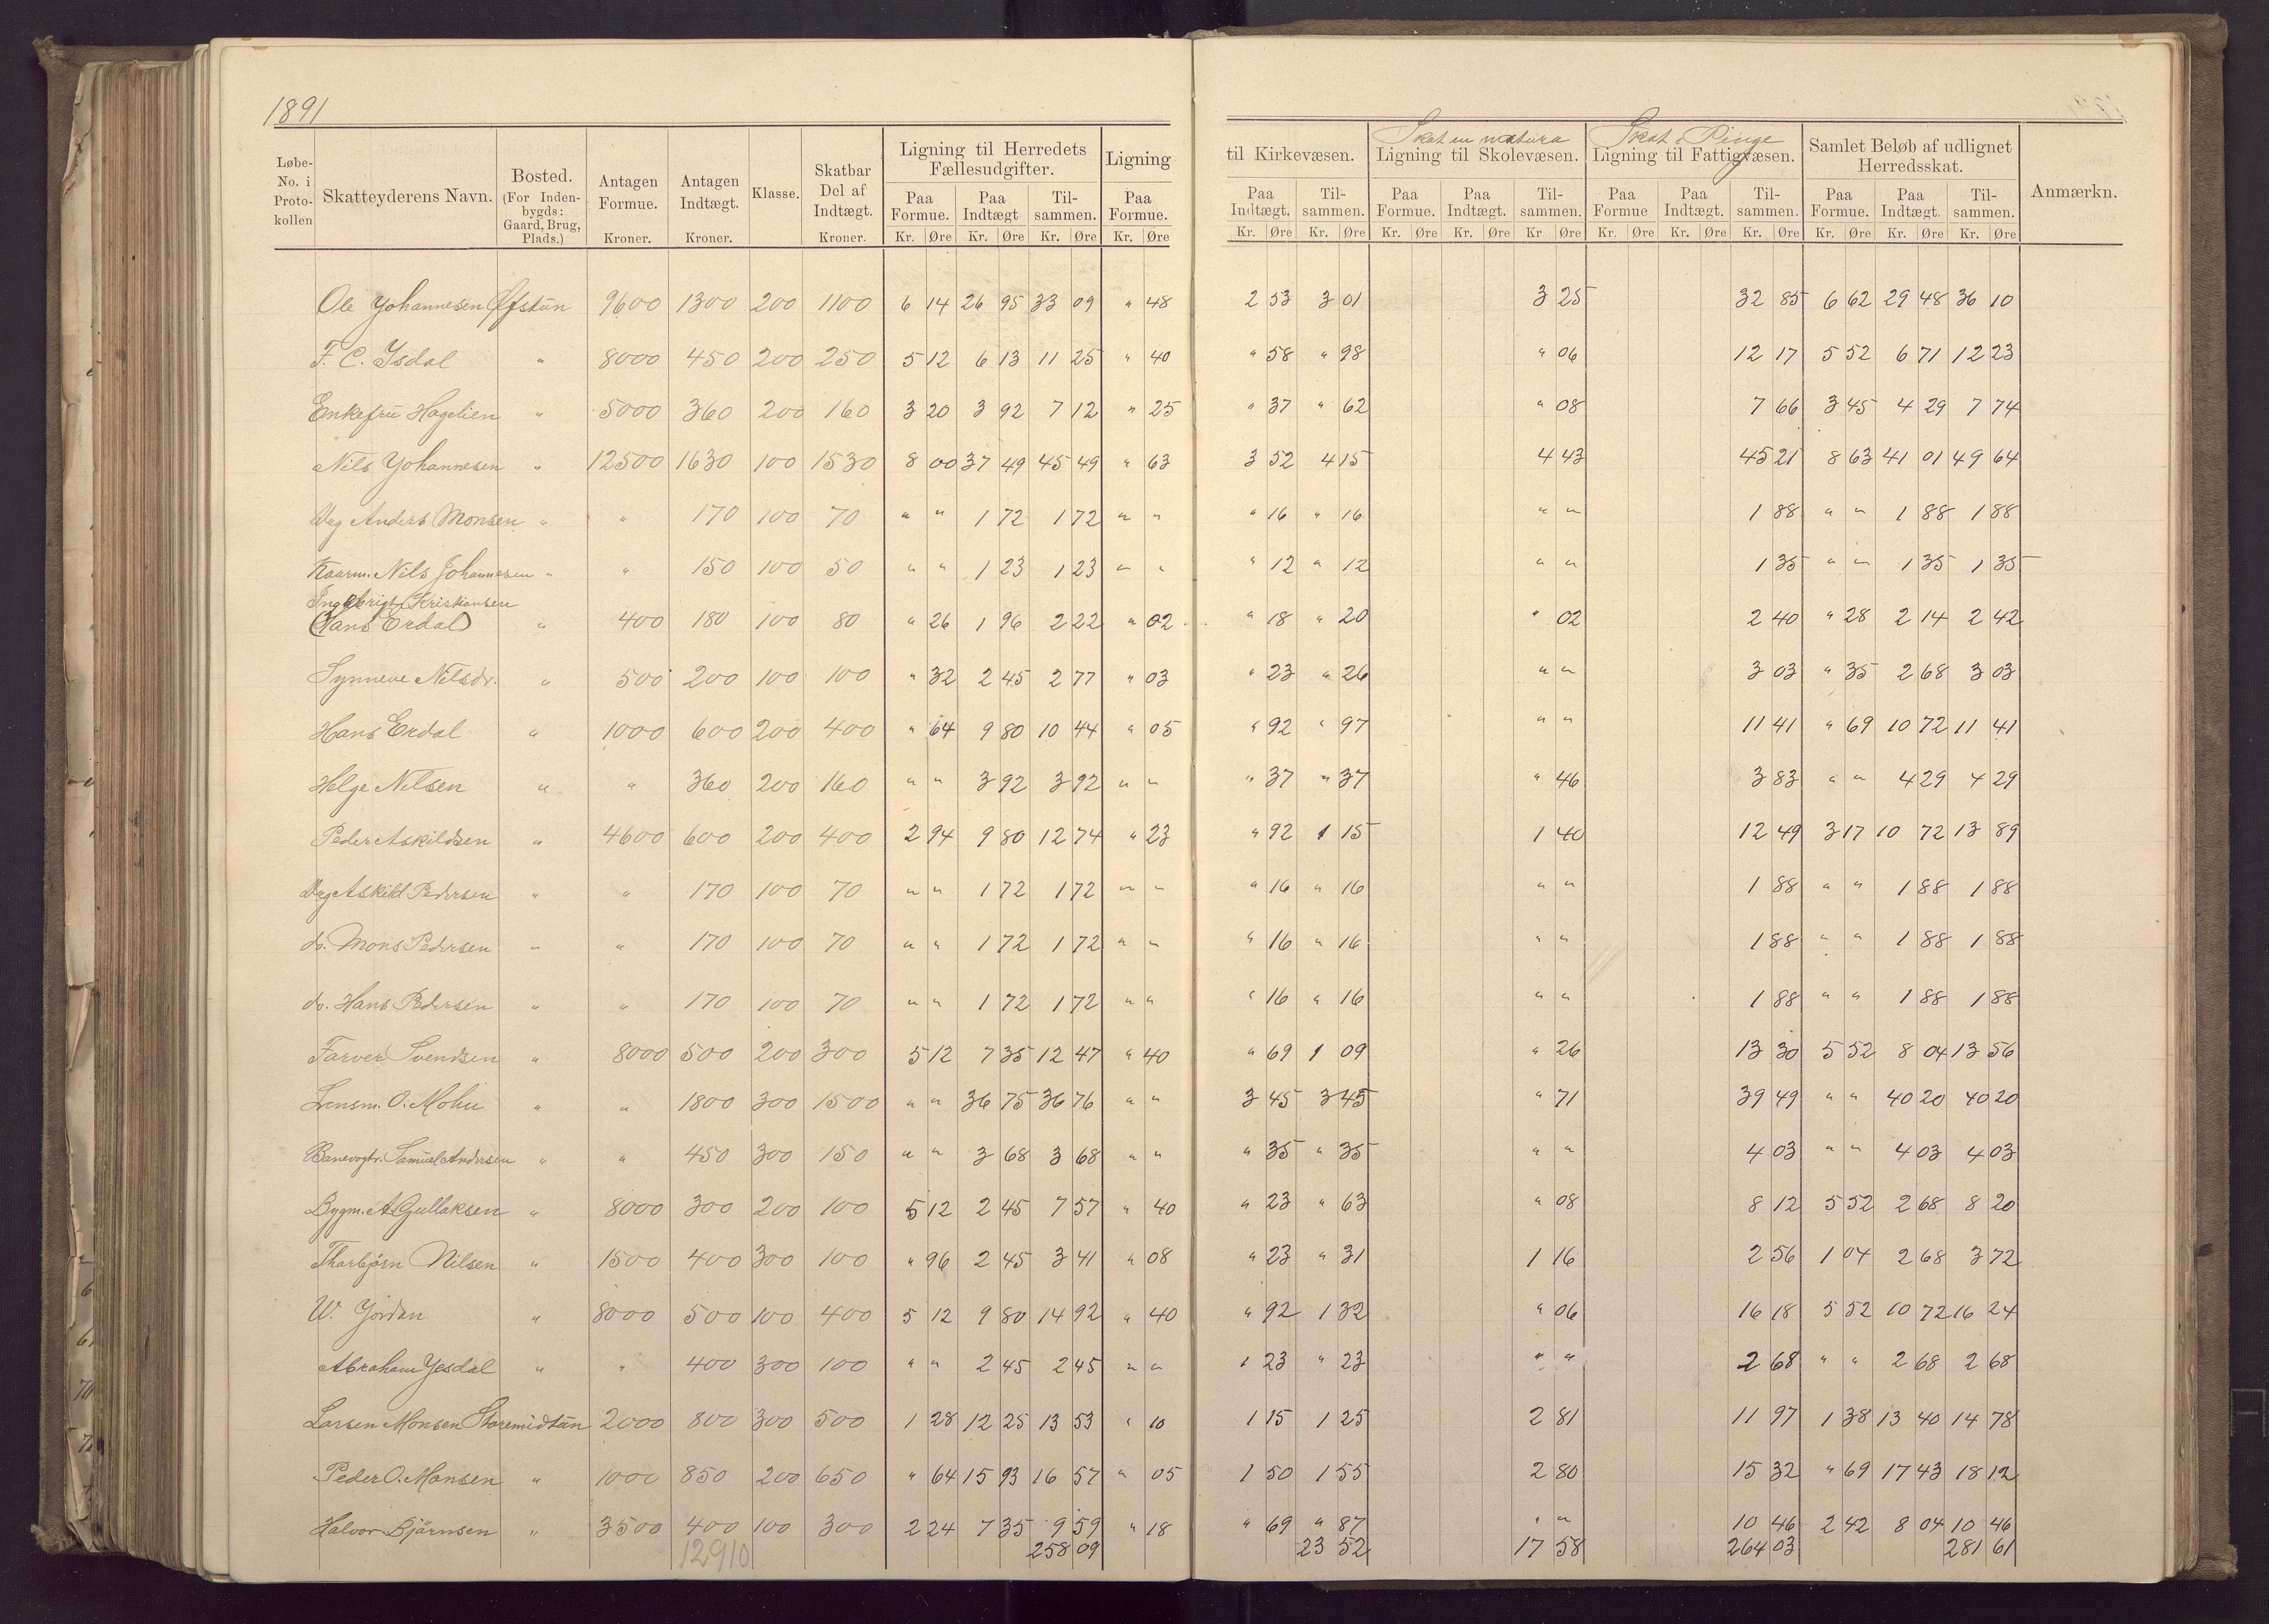 1891
Løbe-No. i Protokollen | Skatteyderens Navn. | Bosted. (For Indenbygds: Gaard, Brug, Plads.) | Antagen Formue. Kroner. | Antagen Indtægt. Kroner. | Klasse. | Skatbar Del af Indtægt. Kroner. | Ligning til Herredets Fællesudgifter. Paa Formue. Kr. Øre | Paa Indtægt Kr. Øre | Tilsammen. Kr. Øre | Ligning Paa Formue. Kr. Øre | til Kirkevæsen. Paa Indtægt. Kr. Øre | Tilsammen. Kr. Øre | Skat en natura Ligning til Skolevæsen. Paa Formue. Kr. Øre | Paa Indtægt. Kr. Øre | Tilsammen. Kr Øre | Skat i Penge Ligning til Fattigvæsen. Paa Formue Kr. Øre | Paa Indtægt. Kr. Øre | Tilsammen. Kr. Øre | Samlet Beløb af udlignet Herredsskat. Paa Formue. Kr. Øre | Paa Indtægt. Kr. Øre | Tilsammen. Kr. Øre | Anmærkn.
Ole Johannesen Øfstun 9600 1300 200 1100 6 14 26 95 33 09 " 48 2 53 3 01 3 25 32 85 6 62 29 48 36 10
F. C. Isdal " 8000 450 200 250 5 12 6 13 11 25 " 40 " 58 " 98 " 06 12 17 5 52 6 71 12 23
Enkefru Hagelien " 5000 360 200 160 3 20 3 92 7 12 " 25 " 37 " 62 " 08 7 66 3 45 4 29 7 74
Nils Johannesen " 12500 1630 100 1530 8 00 37 49 45 49 " 63 3 52 4 15 4 43 45 21 8 63 41 01 49 64
Ung Anders Monsen " " 170 100 70 " " 1 72 1 72 " " " 16 " 16 " " 1 88 " " 1 88 1 88
Kaarm. Nils Johannesen " " 150 100 50 " " 1 23 1 23 " " " 12 " 12 " " 1 35 " " 1 35 1 35
Ingebrigt Kristiansen
(Hans Erdal) " 400 180 100 80 " 26 1 96 2 22 " 02 " 18 " 20 " 02 2 40 " 28 2 14 2 42
Synneve Nilsdr. " 500 200 100 100 " 32 2 45 2 77 " 03 " 23 " 26 " " 3 03 " 35 2 68 3 03
Hans Erdal " 1000 600 200 400 " 64 9 80 10 44 " 05 " 92 " 97 " " 11 41 " 69 10 72 11 41
Helge Nilsen " " 360 200 160 " " 3 92 3 92 " " " 37 " 37 " 46 3 83 " " 4 29 4 29
Peder Askildsen " 4600 600 200 400 2 94 9 80 12 74 " 23 " 92 1 15 1 40 12 49 3 17 10 72 13 89
Ung Askild Pedersen " " 170 100 70 " " 1 72 1 72 " " " 16 " 16 " " 1 88 " " 1 88 1 88
do. Mons Pedersen " " 170 100 70 " " 1 72 1 72 " " " 16 " 16 " " 1 88 " " 1 88 1 88
do. Hans Pedersen " " 170 100 70 " " 1 72 1 72 " " " 16 " 16 " " 1 88 " " 1 88 1 88
Farver Svendsen " 8000 500 200 300 5 12 7 35 12 47 " 40 " 69 1 09 " 26 13 30 5 52 8 04 13 56
Lensm. O. Mohu " " 1800 300 1500 " " 36 75 36 76 " " 3 45 3 45 " 71 39 49 " " 40 20 40 20
Banevogtr. Samuel Andersen " " 450 300 150 " " 3 68 3 68 " " " 35 " 35 " " 4 03 " " 4 03 4 03
Bygm. A Gullaksen " 8000 300 200 100 5 12 2 45 7 57 " 40 " 23 " 63 " 08 8 12 5 52 2 68 8 20
Thorbjørn Nilsen " 1500 400 300 100 " 96 2 45 3 41 " 08 " 23 " 31 1 16 2 56 1 04 2 68 3 72
W. Jordan " 8000 500 100 400 5 12 9 80 14 92 " 40 " 92 1 32 " 06 16 18 5 52 10 72 16 24
Abraham Ysdal " " 400 300 100 " " 2 45 2 45 " " " 23 " 23 " " 2 68 " " 2 68 2 68
Larsen Monsen Storemidtun 2000 800 300 500 1 28 12 25 13 53 " 10 1 15 1 25 2 81 11 97 1 38 13 40 14 78
Peder O. Monsen " 1000 850 200 650 " 64 15 93 16 57 " 05 1 50 1 55 2 80 15 32 " 69 17 43 18 12
Halvor Bjørnsen " 3500 400 100 300 2 24 7 35 9 59 " 18 " 69 " 87 " " 10 46 2 42 8 04 10 46
12910 258 09 23 52 17 58 264 03 281 61